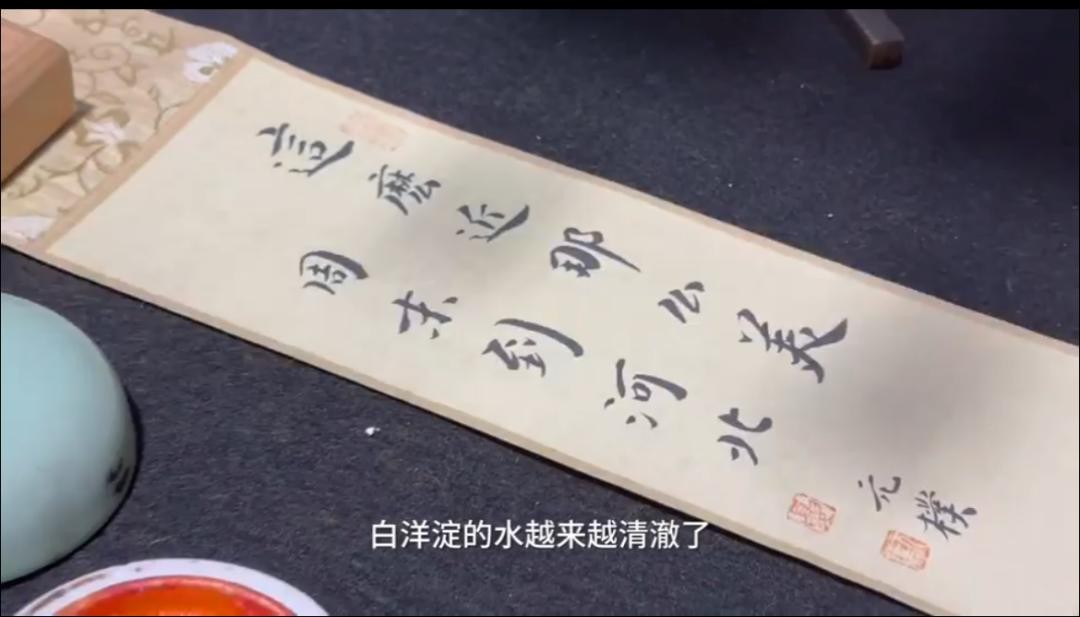 這麼近那么美
周末到河北
元樸
白洋淀的水越来越清澈了